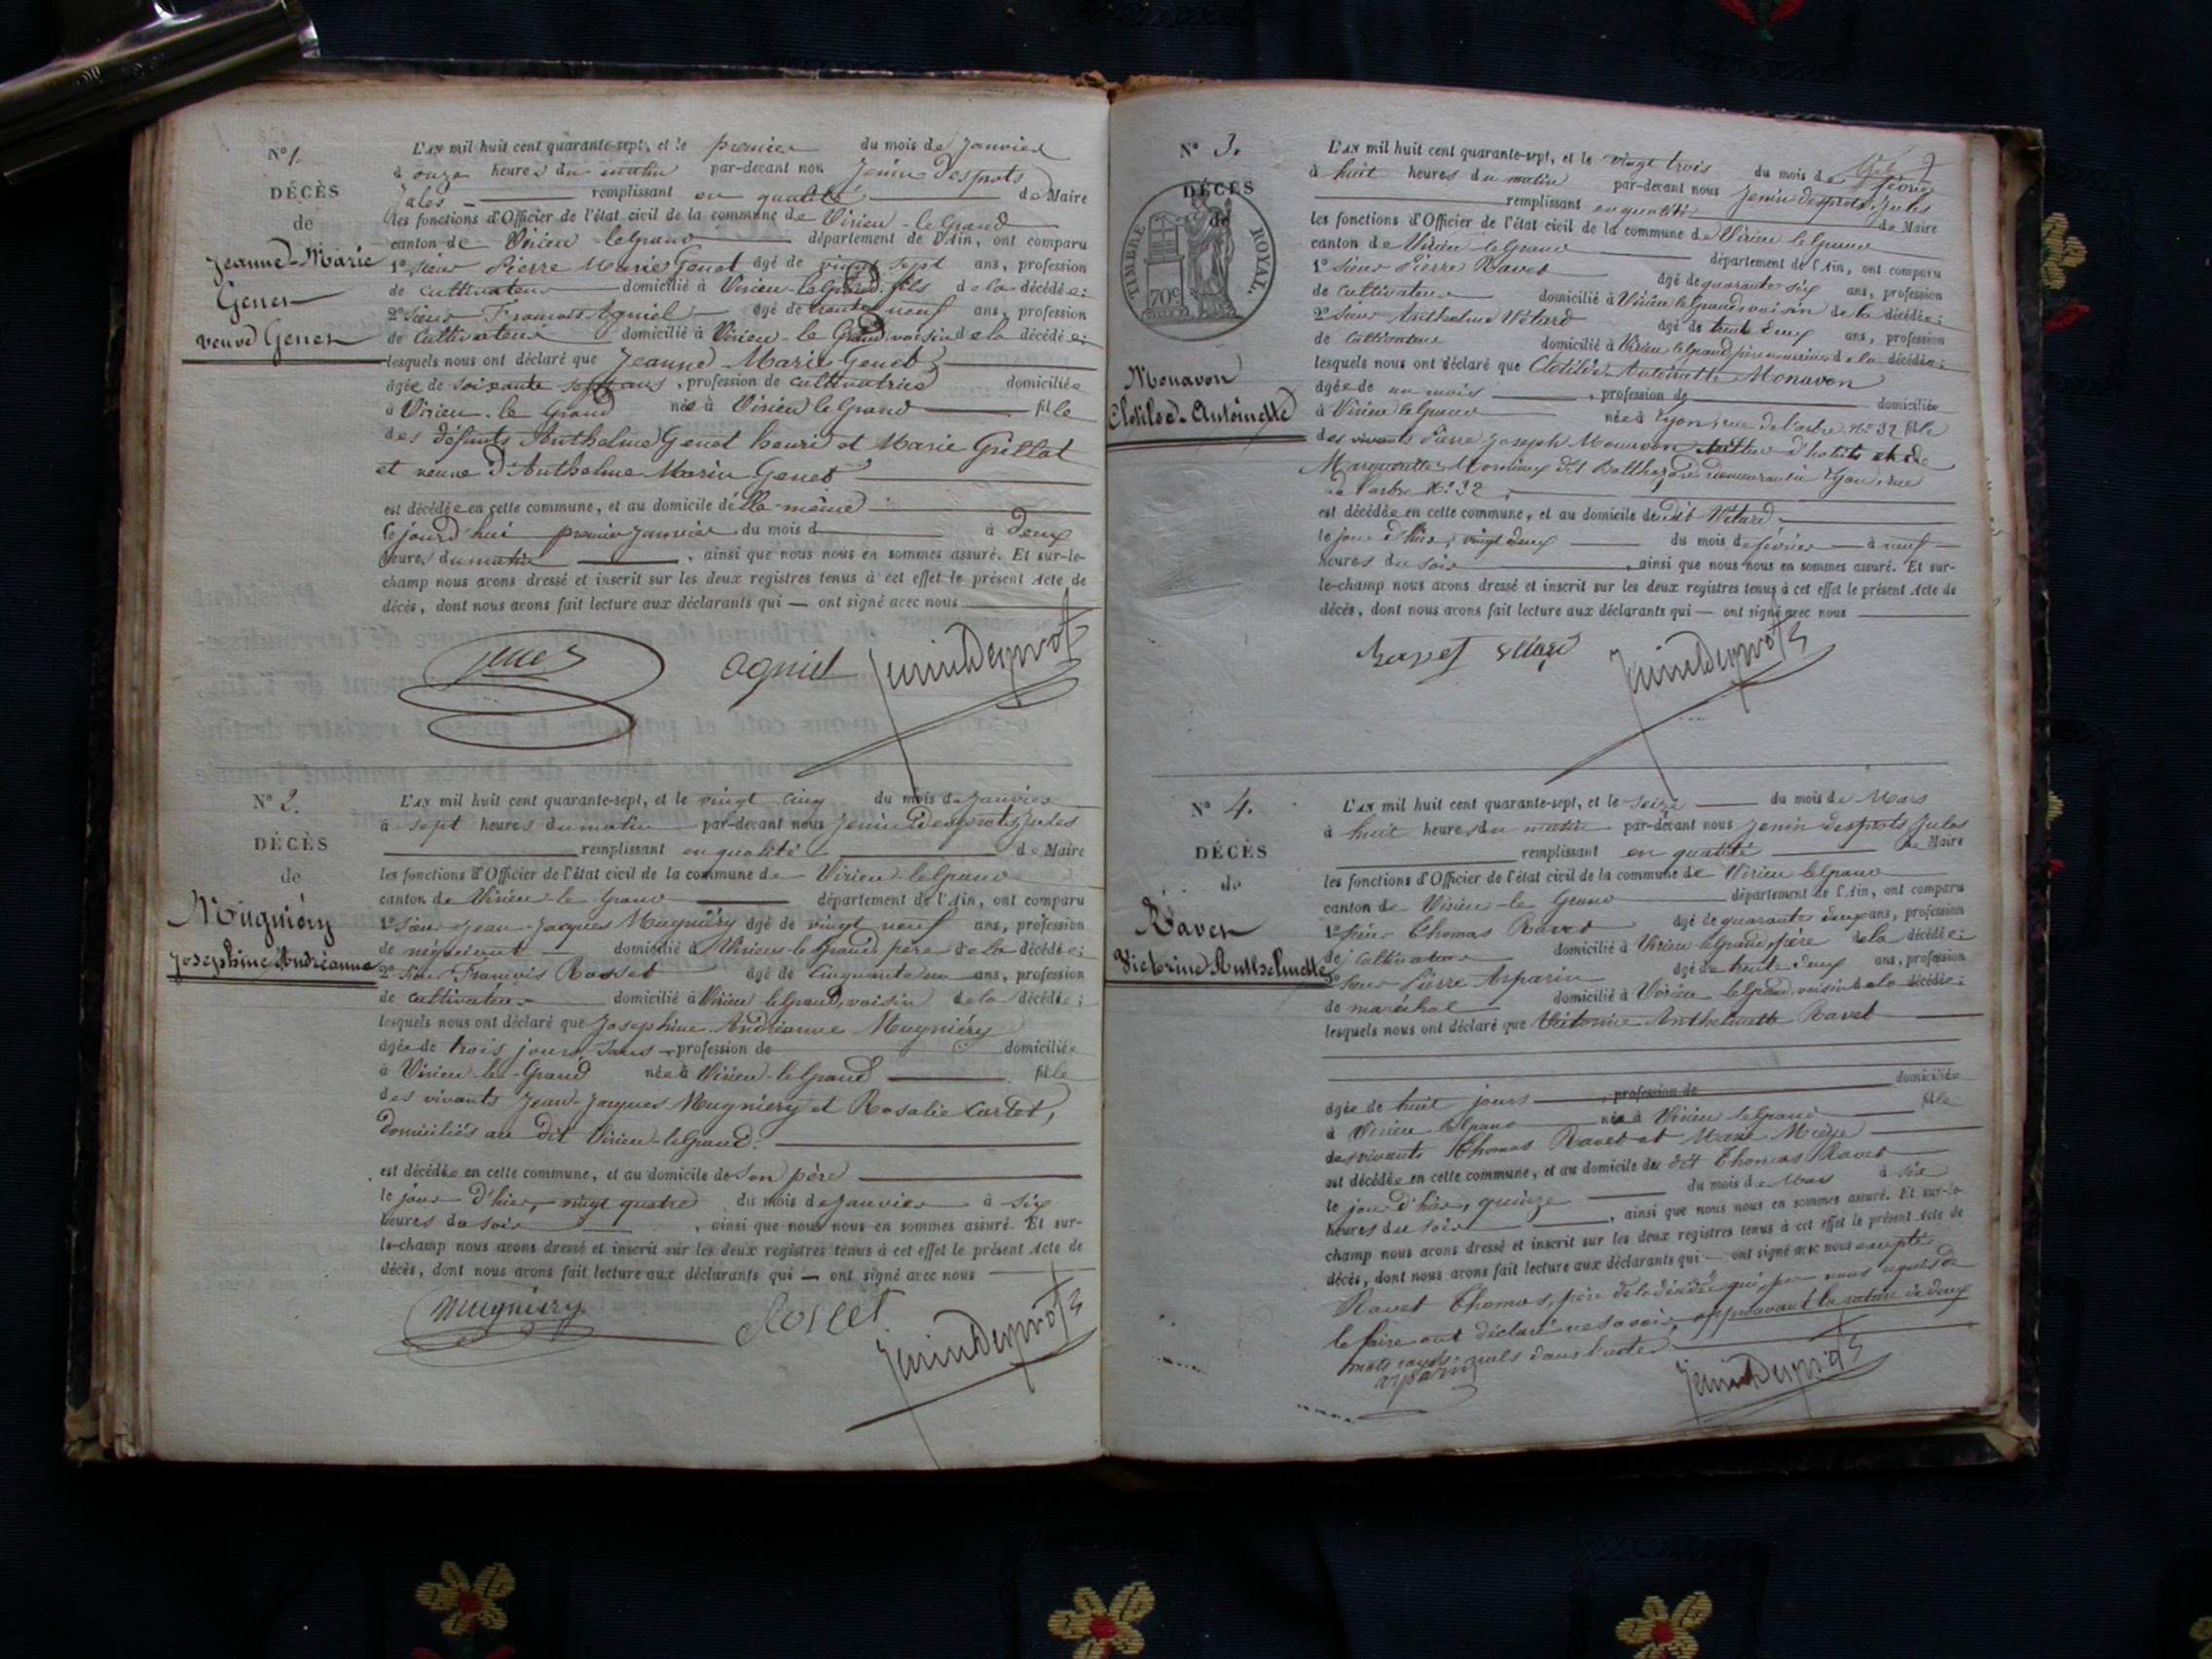 N° 1.
DÉCÈS
de
Jeanne-Marie
Genet
veuve Genet
L'AN mil huit cent quarante-sept, et le premier du mois de Janvier
à onze heures du matin par-devant nous Jenin Desprots
Jules remplissant en qualité de Maire
les fonctions d'Officier de l'état civil de la commune de Virieu-le-Grand
canton de Virieu-le-Grand département de l'Ain, ont comparu
1° Sieur Pierre Marie Genet âgé de vingt sept ans, profession
de cultivateur domicilié à Virieu-le-Grand, fils de la décédée;
2° Sieur François Agniel âgé de trente neuf ans, profession
de cultivateur domicilié à Virieu-le Grand, voisin de la décédée;
lesquels nous ont déclaré que Jeanne-Marie Genet
âgée de soixante sept ans, profession de cultivatrice domiciliée
à Virieu-le Grand née à Virieu le Grand fille
des défunts Anthelme Genet henri et Marie Grillat
et veuve d'Anthelme Marin Genet
est décédée en cette commune, et au domicile d'elle-même
ce jourd'hui premier janvier du mois d à deux
heures du matin, ainsi que nous nous en sommes assuré. Et sur-le-
champ nous avons dressé et inscrit sur les deux registres tenus à cet effet le présent Acte de
décès, dont nous avons fait lecture aux déclarants qui — ont signé avec nous
Genet agniel JeninDesprots
N° 2.
DÉCÈS
de
Mugniéry
Josephine Andréanne
L'AN mil huit cent quarante-sept, et le vingt cinq du mois de Janvier
à sept heures du matin par-devant nous Jenin Desprots Jules
remplissant en qualité de Maire
les fonctions d'Officier de l'état civil de la commune de Virieu-le grand
canton de Virieu-le Grand département de l'Ain, ont comparu
1° Sieur Jean-Jacques Mugniéry âgé de vingt neuf ans, profession
de négociant domicilié à Virieu-le-Grand, père de la décédée;
2° Sieur François Rosset âgé de cinquante un ans, profession
de cultivateur domicilié à Virieu le Grand, voisin de la décédée;
lesquels nous ont déclaré que Josephine Andréanne Mugniéry
âgée de trois jours, sans profession de domiciliée
à Virieu-le-Grand née à Virieu-le Grand fille
des vivants Jean-Jacques Mugniéry et Rosalie Curtet,
domiciliés au dit Virieu-le Grand.
est décédée en cette commune, et au domicile de son père
le jour d'hier, vingt quatre du mois de Janvier à six
heures du soir, ainsi que nous nous en sommes assuré. Et sur-
le-champ nous avons dressé et inscrit sur les deux registres tenus à cet effet le présent Acte de
décès, dont nous avons fait lecture aux déclarants qui — ont signé avec nous
Mugniery Rosset JeninDesprots
2
N° 3.
DÉCÈS
de
TIMBRE ROYAL.
70c
Monavon
Clotilde-Antoinette
L'AN mil huit cent quarante-sept, et le vingt trois du mois de février
à huit heures du matin par-devant nous Jenin Desprots Jules
remplissant en qualité de Maire
les fonctions d'Officier de l'état civil de la commune de Virieu le Grand
canton de Virieu-le Grand département de l'Ain, ont comparu
1° Sieur Pierre Ravet âgé de quarante six ans, profession
de cultivateur domicilié à Virieu le Grand, voisin de la décédée;
2° Sieur Anthelme Vétard âgé de trente deux ans, profession
de cultivateur domicilié à Virieu le Grand, père nourricier de la décédée;
lesquels nous ont déclaré que Clotilde Antoinette Monavon
âgée de un mois, profession de domiciliée
à Virieu le Grand née à Lyon, rue de l'arbre N° 32 fille
des vivants Pierre Joseph Monavon d'hotels et de
Marguerite dit Balthazard demeurant à Lyon, rue
de l'arbre N° 32
est décédée en cette commune, et au domicile du dit Vétard
le jour d'hier, vingt deux du mois de février à neuf
heures du soir, ainsi que nous nous en sommes assuré. Et sur-
le-champ nous avons dressé et inscrit sur les deux registres tenus à cet effet le présent Acte de
décès, dont nous avons fait lecture aux déclarants qui — ont signé avec nous
Ravet JeninDesprots
N° 4.
DÉCÈS
de
Ravet
Victorine Anthelmette
L'AN mil huit cent quarante-sept, et le seize du mois de Mars
à huit heures du matin par-devant nous Jenin Desprots Jules
remplissant en qualité de Maire
les fonctions d'Officier de l'état civil de la commune de Virieu le grand
canton de Virieu-le Grand département de l'Ain, ont comparu
1° Sieur Thomas Ravet âgé de quarante deux ans, profession
de cultivateur domicilié à Virieu le Grand, père de la décédée;
2° Sieur Pierre Arparin âgé de trente deux ans, profession
de maréchal domicilié à Virieu le Grand, voisin de la décédée;
lesquels nous ont déclaré que Victorine Anthelmette Ravet
âgée de huit jours, profession de domiciliée
à Virieu le Grand née à Virieu le Grand fille
des vivants Thomas Ravet et Marie
est décédée en cette commune, et au domicile du dit Thomas Ravet
le jour d'hier, quinze du mois de Mars à six
heures du soir, ainsi que nous nous en sommes assuré. Et sur-le-
champ nous avons dressé et inscrit sur les deux registres tenus à cet effet le présent Acte de
décès, dont nous avons fait lecture aux déclarants qui — ont signé avec nous excepté
Ravet Thomas, père de la décédée qui, par nous requis de
le faire ont déclaré ne savoir, approuvant la rature de deux
mots rayés nuls dans l'acte
arparin JeninDesprots